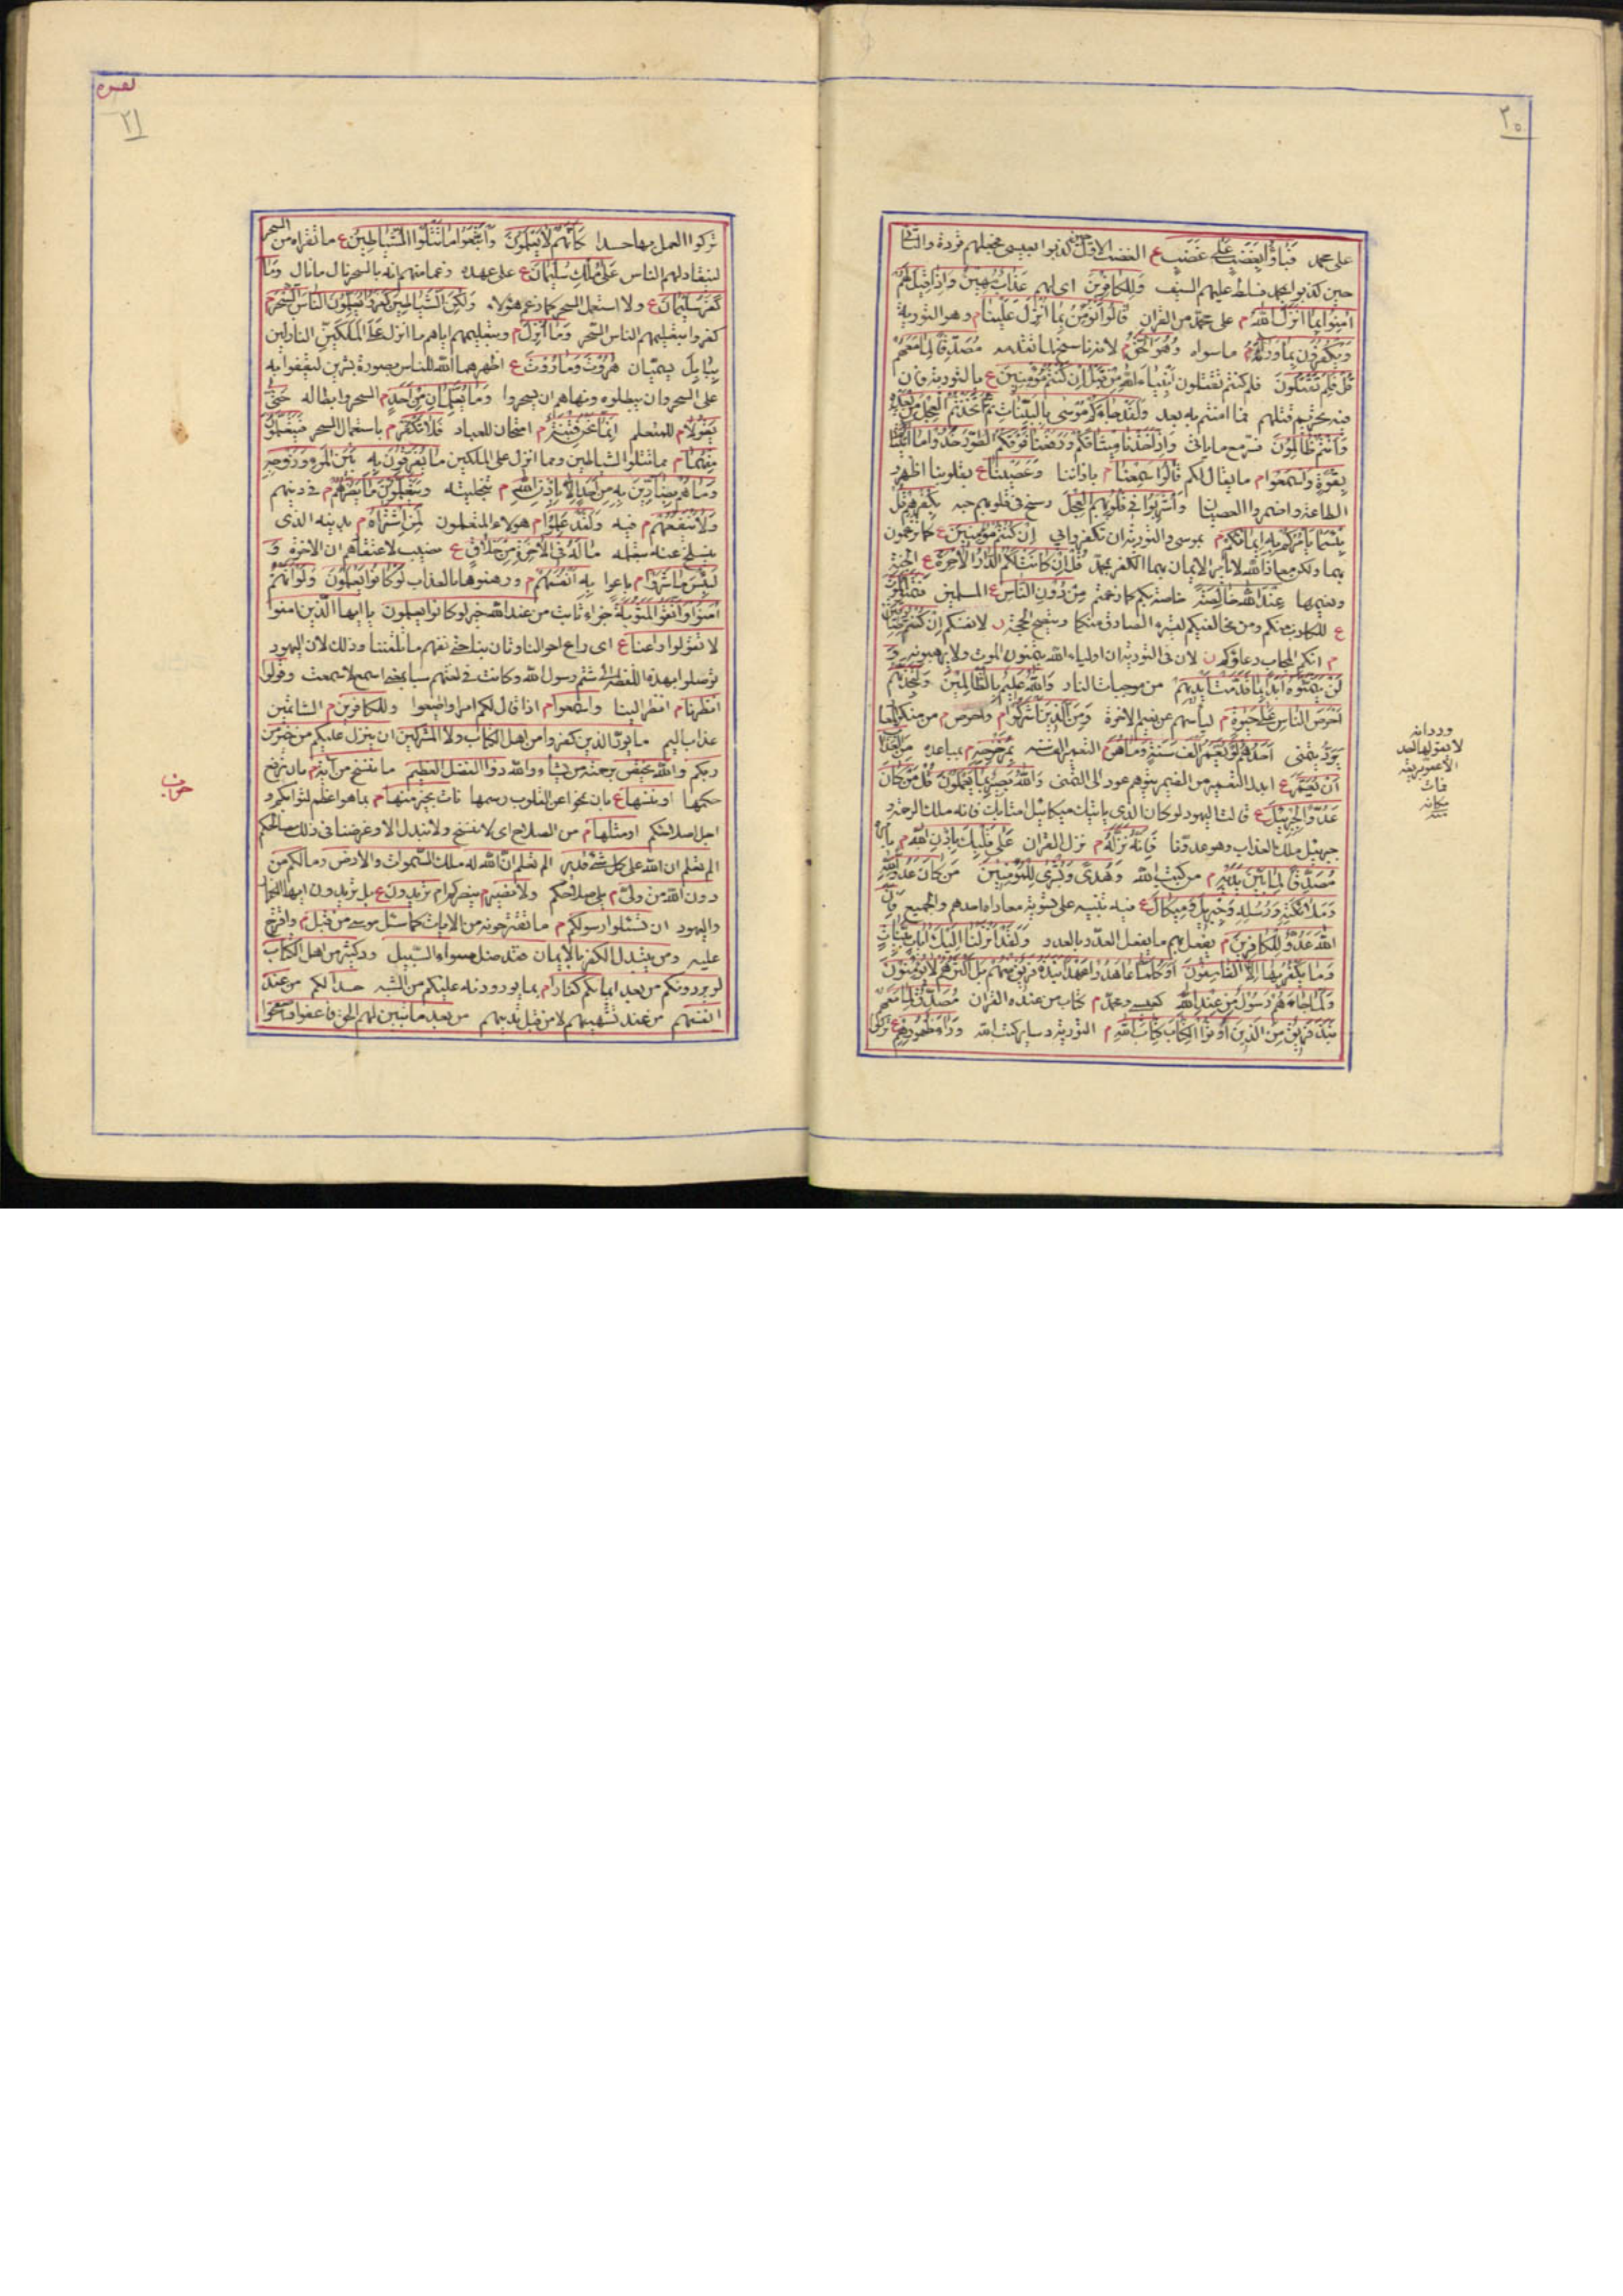 ٢٠
على محمد فَبَاؤُا بِغَضَبٍ عَلىٰ غَضَبٍ ع الغضب الاول حين كذبوا بعيسى فجعلهم قردة والثانى
حين كذبوا بمحمد فسلط عليهم السيف وَلِلْكافِرِينَ اى لهم عَذابٌ مُهِينٌ وَاِذا قِيلَ لَهُمْ
اٰمِنُوا بِما اَنْزَلَ اللّٰهُ م على محمد من القران قالُوا نُؤْمِنُ بِما اُنْزِلَ عَلَيْنا م وهو التورية
وَيَكْفُرُونَ بِما وَراءَهُ م ما سواه وَهُوَ الْحَقُّ م لانه ناسخ لما تقدمه مُصَدِّقًا لِما مَعَهُمْ
قُلْ فَلِمَ تَقْتُلُونَ فلم كنتم تقتلون اَنْبِياءَ اللّٰهِ مِنْ قَبْلُ اِنْ كُنْتُمْ مُؤْمِنِينَ ع بالتورية فان
فيه تحريم قتلهم فما امنتم به بعد وَلَقَدْ جاءَكُمْ مُوسى بِالْبَيِّناتِ ثُمَّ اتَّخَذْتُمُ الْعِجْلَ مِنْ بَعْدِهِ
وَاَنْتُمْ ظالِمُونَ وَاِذْ اَخَذْنا مِيثاقَكُمْ وَرَفَعْنا فَوْقَكُمُ الطُّورَ خُذُوا ما اٰتَيْناكُمْ
بِقُوَّةٍ وَاسْمَعُوا م ما يقال لكم قالُوا سَمِعْنا م باذاننا وَعَصَيْنا ع بقلوبنا اظهروا
الطاعة واضمروا العصيان وَاُشْرِبُوا فِى قُلُوبِهِمُ الْعِجْلَ رسخ فى قلوبهم حبه بِكُفْرِهِمْ قُلْ
بِئْسَما يَأْمُرُكُمْ بِهِ اِيمانُكُمْ م بموسى والتورية ان تكفروا بى اِنْ كُنْتُمْ مُؤْمِنِينَ ع كما تزعمون
بهما ولكن معاذ الله لا يأمر الايمان بهما الكفر بمحمد قُلْ اِنْ كانَتْ لَكُمُ الدّارُ الْاٰخِرَةُ ع الجنة
ونعيمها عِنْدَ اللّٰهِ خالِصَةً خاصة بكم كما زعمتم مِنْ دُونِ النّاسِ ع المسلمين فَتَمَنَّوُا الْمَوْتَ
ع للكاذب منكم ومن مخالفيكم ليتميز الصادق منكما ويتضح الحجة لانفسكم اِنْ كُنْتُمْ صادِقِينَ
م انكم المجاب دعاؤكم لان فى التورية ان اولياء الله يتمنون الموت ولا يرهبونه وَ
لَنْ يَتَمَنَّوْهُ اَبَدًا بِما قَدَّمَتْ اَيْدِيهِمْ من موجبات النار وَاللّٰهُ عَلِيمٌ بِالظّالِمِينَ وَلَتَجِدَنَّهُمْ
اَحْرَصَ النّاسِ عَلىٰ حَيٰوةٍ م ليأسهم عن نعيم الاخرة وَمِنَ الَّذِينَ اَشْرَكُوا م واحرص من
يَوَدُّ يتمنى اَحَدُهُمْ لَوْ يُعَمَّرُ اَلْفَ سَنَةٍ وَما هُوَ م التعمير الف سنة بِمُزَحْزِحِهِ م بمباعده مِنَ الْعَذابِ
اَنْ يُعَمَّرَ ع ابدل التعمير من الضمير لتوهم عود الى التمنى وَاللّٰهُ بَصِيرٌ بِما يَعْمَلُونَ قُلْ مَنْ كانَ
عَدُوًّا لِجِبْرِيلَ ع قالت اليهود لو كان الذى يأتيك ميكائيل امنا بك فانه ملك الرحمة و
جبرئيل ملك العذاب وهو عدونا فَاِنَّهُ نَزَّلَهُ م نزل القران عَلىٰ قَلْبِكَ بِاِذْنِ اللّٰهِ م
مُصَدِّقًا لِما بَيْنَ يَدَيْهِ م من كتب الله وَهُدًى وَبُشْرىٰ لِلْمُؤْمِنِينَ مَنْ كانَ عَدُوًّا لِلّٰهِ
وَمَلائِكَتِهِ وَرُسُلِهِ وَجِبْرِيلَ وَمِيكالَ ع فيه تنبيه على تسوية معاداة احدهم والجميع فَاِنَّ
اللّٰهَ عَدُوٌّ لِلْكافِرِينَ م يفعل بهم ما يفعل العدو بالعدو وَلَقَدْ اَنْزَلْنا اِلَيْكَ اٰياتٍ بَيِّناتٍ
وَما يَكْفُرُ بِها اِلَّا الْفاسِقُونَ اَوَكُلَّما عاهَدُوا عَهْدًا نَبَذَهُ فَرِيقٌ مِنْهُمْ بَلْ اَكْثَرُهُمْ لا يُؤْمِنُونَ
وَلَمّا جاءَهُمْ رَسُولٌ مِنْ عِنْدِ اللّٰهِ كعيسى ومحمد م كتاب من عنده القران مُصَدِّقٌ لِما مَعَهُمْ
نَبَذَ فَرِيقٌ مِنَ الَّذِينَ اُوتُوا الْكِتابَ كِتابَ اللّٰهِ م التورية وساير كتب الله وَراءَ ظُهُورِهِمْ ع تركوا
وورد انه
لا يقولها احد
الا غص بريقه
فمات
مكانه
بقره
٢١
تركوا العمل بها حسدا كَاَنَّهُمْ لا يَعْلَمُونَ وَاتَّبَعُوا ما تَتْلُوا الشَّياطِينُ ع ما تقراه من السحر
لينقاد لهم الناس عَلىٰ مُلْكِ سُلَيْمانَ ع على عهده زعما منهم انه بالسحر نال ما نال وَما
كَفَرَ سُلَيْمانُ ع ولا استعمل السحر كما زعم هؤلاء وَلٰكِنَّ الشَّياطِينَ كَفَرُوا يُعَلِّمُونَ النّاسَ السِّحْرَ م
كفروا بتعليمهم الناس السحر وَما اُنْزِلَ م وبتعليمهم اياهم ما انزل عَلَى الْمَلَكَيْنِ النازلين
بِبابِلَ يسميان هارُوتَ وَمارُوتَ ع اظهرهما الله للناس بصورة بشرين ليقفوا به
على السحر وان يبطلوه ونهاهم ان يسحروا وَما يُعَلِّمانِ مِنْ اَحَدٍ م السحر وابطاله حَتّىٰ
يَقُولا م للمتعلم اِنَّما نَحْنُ فِتْنَةٌ م امتحان للعباد فَلا تَكْفُرْ م باستعمال السحر فَيَتَعَلَّمُونَ
مِنْهُما م مما تتلوا الشياطين ومما انزل على الملكين ما يُفَرِّقُونَ بِهِ بَيْنَ الْمَرْءِ وَزَوْجِهِ
وَما هُمْ بِضارِّينَ بِهِ مِنْ اَحَدٍ اِلّا بِاِذْنِ اللّٰهِ م بتخليته وَيَتَعَلَّمُونَ ما يَضُرُّهُمْ م فى دينهم
وَلا يَنْفَعُهُمْ م فيه وَلَقَدْ عَلِمُوا م هؤلاء المتعلمون لَمَنِ اشْتَراهُ م بدينه الذى
ينسلخ عنه بتعلمه ما لَهُ فِى الْاٰخِرَةِ مِنْ خَلاقٍ ع نصيب لاعتقادهم ان لا اخرة وَ
لَبِئْسَ ما شَرَوْا م باعوا بِهِ اَنْفُسَهُمْ م ورهنوها بالعذاب لَوْ كانُوا يَعْلَمُونَ وَلَوْ اَنَّهُمْ
اٰمَنُوا وَاتَّقَوْا لَمَثُوبَةٌ جزاء ثابت من عند الله خير لو كانوا يعلمون يا ايها الذين امنوا
لا تقولوا راعنا ع اى راع احوالنا وتأن بنا حتى نفهم ما تلقننا وذلك لان اليهود
توصلوا بهذه اللفظة الى شتم رسول الله وكانت فى لغتهم سبا بمعنى اسمع لا سمعت وقولوا
انظرنا م انظر الينا واسمعوا م اذا قال لكم امرا واطيعوا وللكافرين م الشاتمين
عذاب اليم ما يود الذين كفروا من اهل الكتاب ولا المشركين ان ينزل عليكم من خير من
ربكم والله يختص برحمته من يشاء والله ذو الفضل العظيم ما ننسخ من اية م بان نرفع
حكمها او ننسها ع بان نمحوا عن القلوب رسمها نأت بخير منها م بما هو اعظم لثوابكم و
اجل لصلاحكم او مثلها م من الصلاح اى لا ننسخ ولا نبدل الا وغرضنا فى ذلك مصالحكم
الم تعلم ان الله على كل شئ قدير الم تعلم ان الله له ملك السموات والارض وما لكم من
دون الله من ولى م يلى صلاحكم ولا نصير م ينصركم ام تريدون ع بل تريدون ايها الكفار
واليهود ان تسئلوا رسولكم م ما تقترحونه من الايات كما سئل موسى من قبل م واقترح
عليه ومن يتبدل الكفر بالايمان فقد ضل سواء السبيل ود كثير من اهل الكتاب
لو يردونكم من بعد ايمانكم كفارا م بما يوردونه عليكم من الشبه حسدا لكم من عند
انفسهم من عند تشهيهم لا من قبل تدينهم من بعد ما تبين لهم الحق فاعفوا واصفحوا